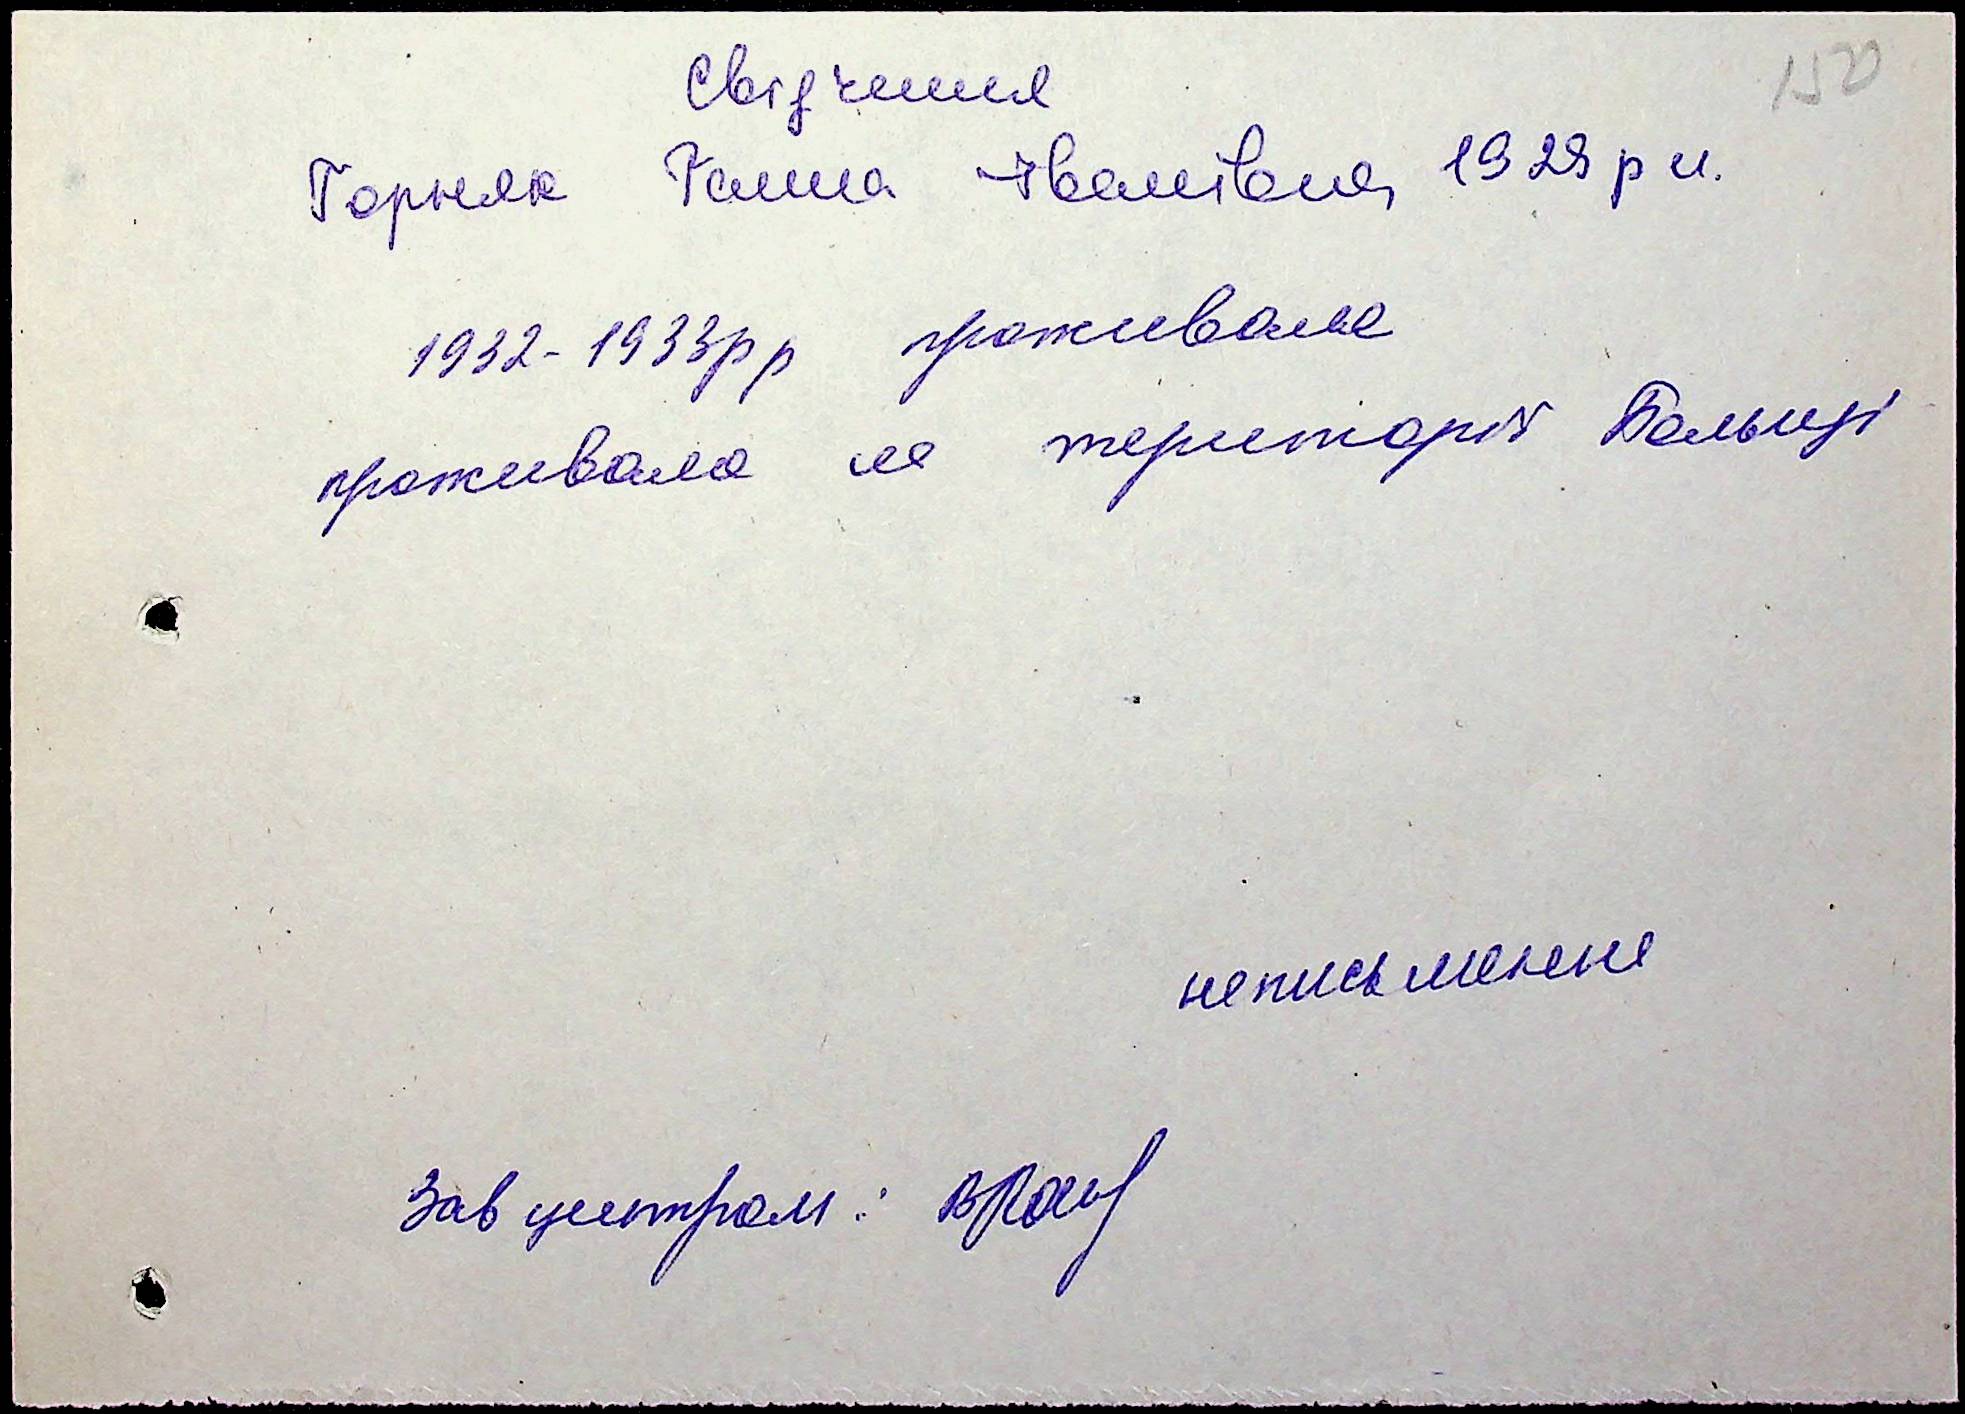 150
Свідчення
Горняк Ганна Іванівна, 1929 р н.
1932-1933рр проживала
проживала на території Польщі
неписьменна
Зав центром: